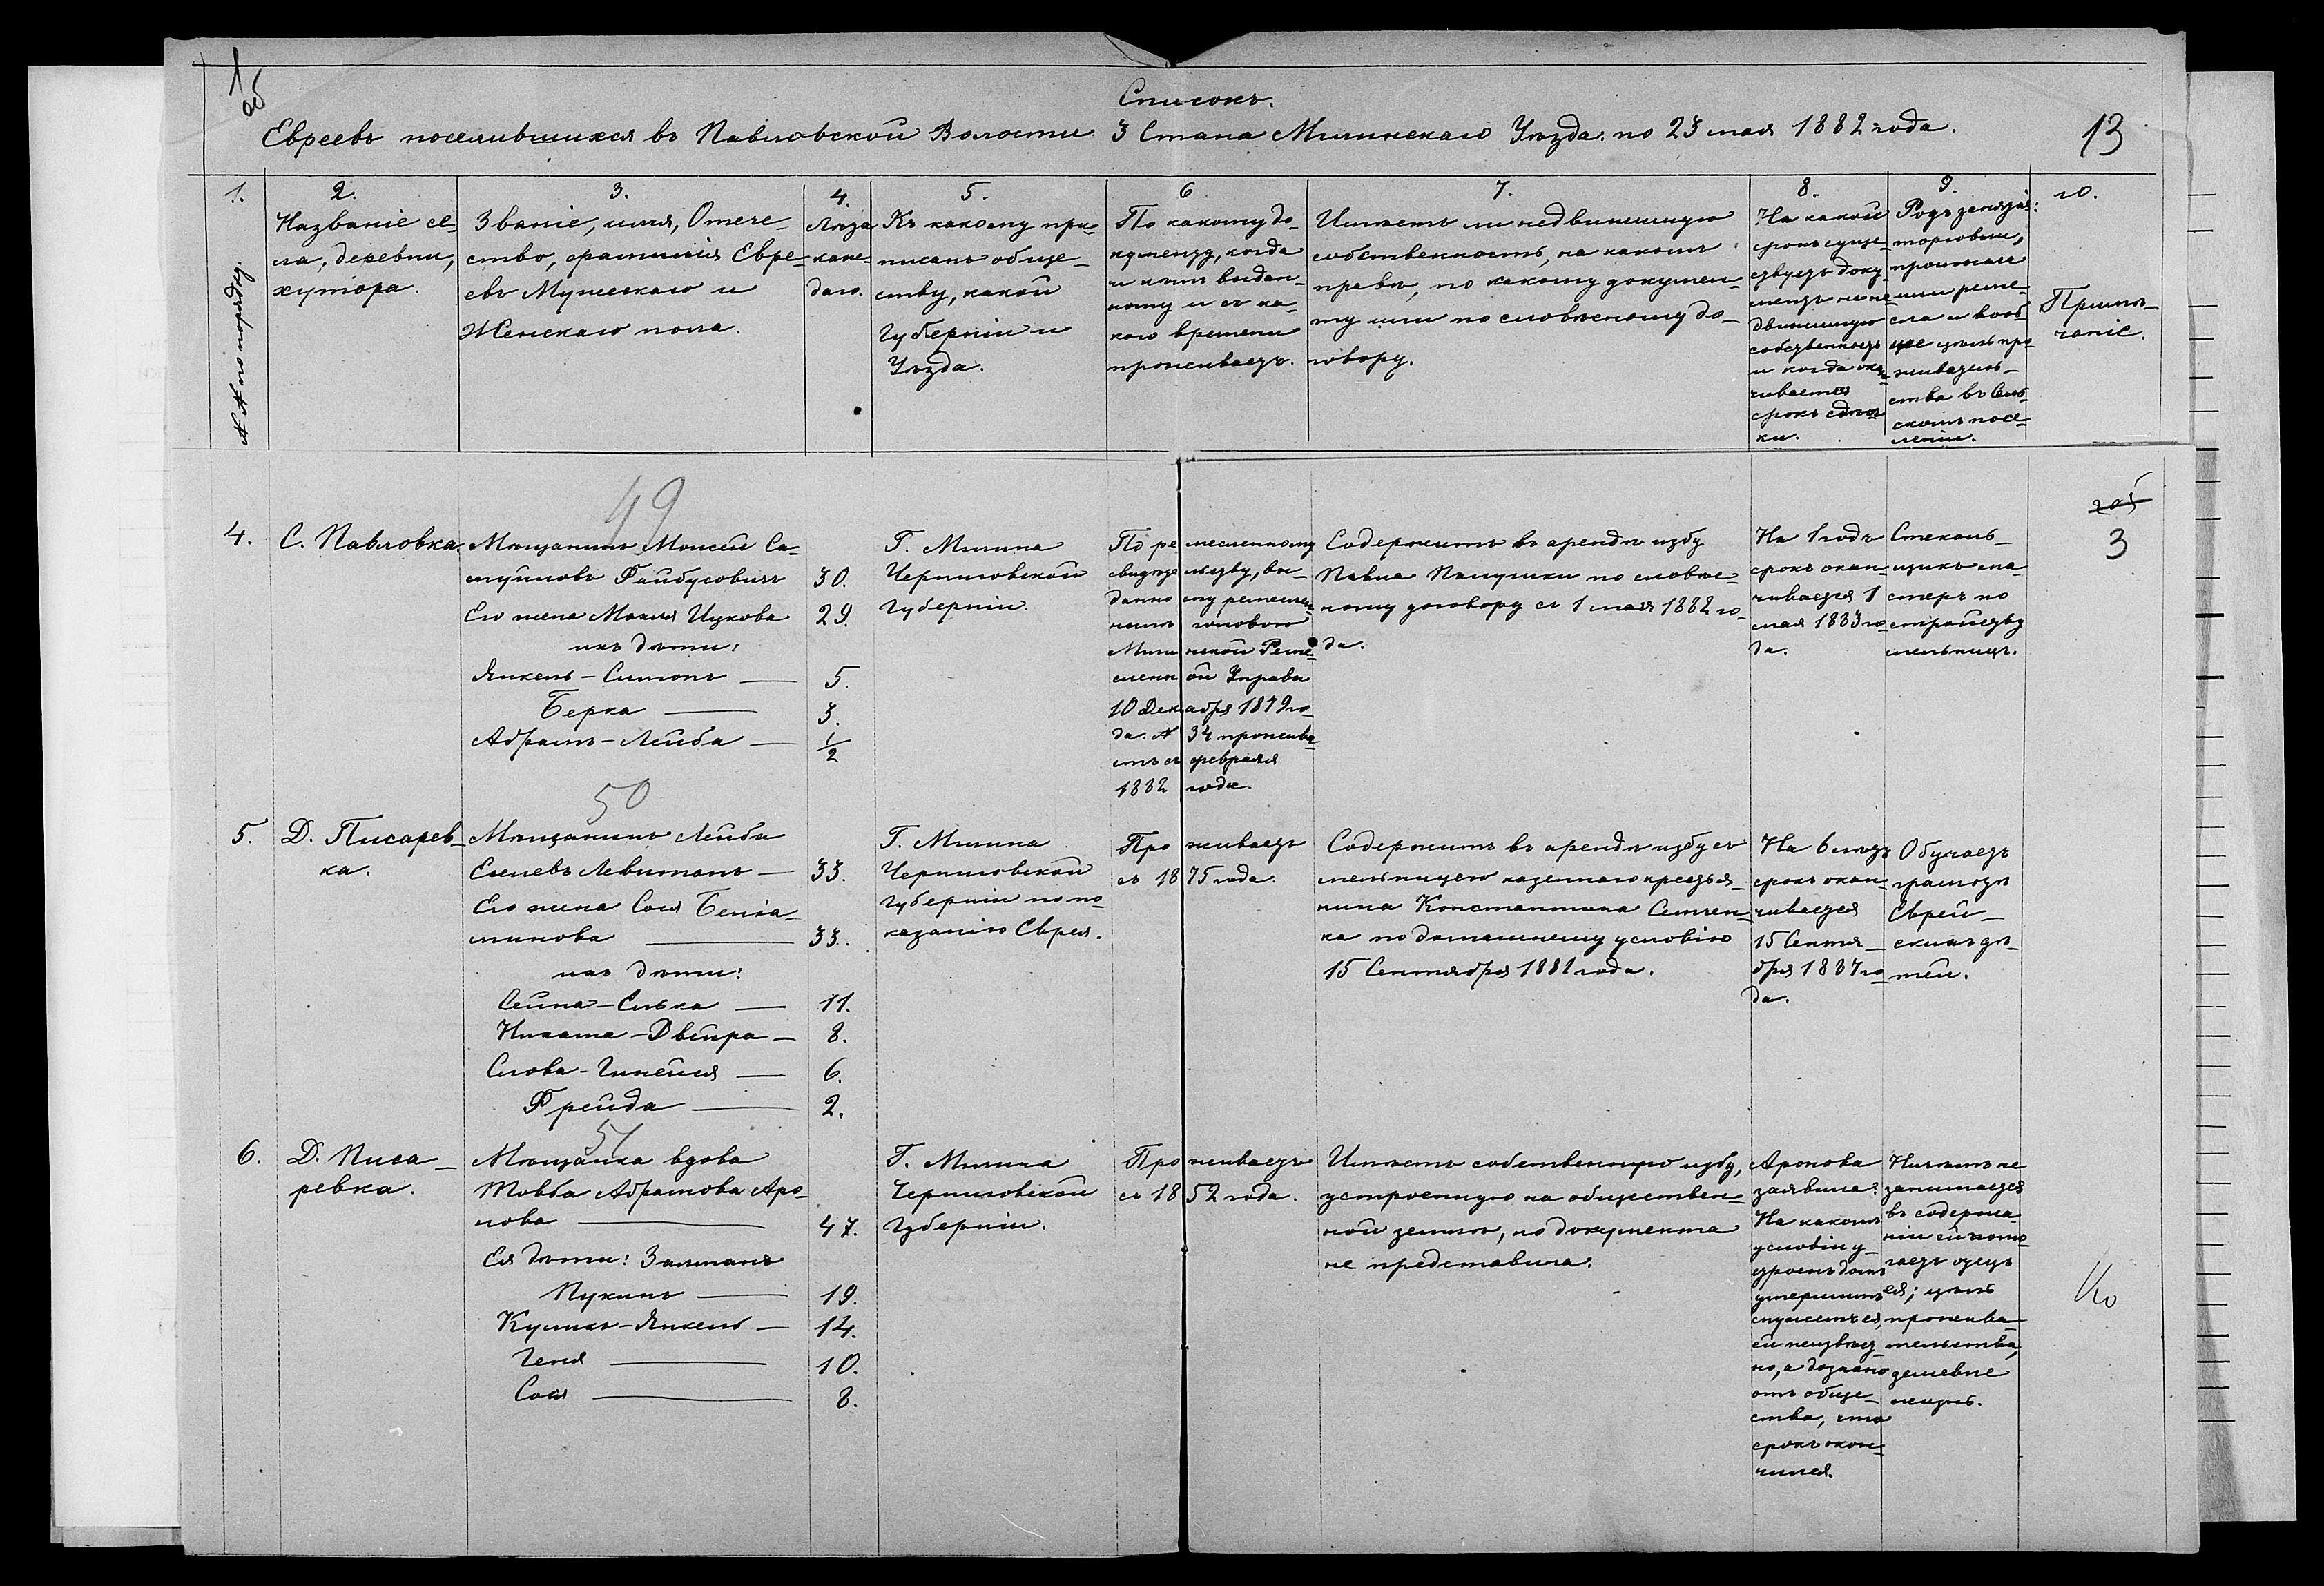 Списокъ.
Евреевъ поселившихся въ Павловской Волости 3 Стана Мглинскаго Уѣзда. по 23 мая 1882 года.
13
1.
№ по порядку.
2.
Названіе се-
ла, деревни,
хутора.
3.
Званіе, имя, Отече-
ство, фамилія Евре-
евъ Мужескаго и
Женскаго пола.
4.
Лѣта
каж-
даго.
5.
Къ какому при-
писанъ обще-
ству, какой
Губерніи и
Уѣзда.
6
По какому до-
кументу, когда
и кѣмъ выдан-
ному и съ ка-
кого времени
проживаетъ.
7.
Имѣетъ ли недвижимую
собственность, на какомъ
правѣ, по какому докумен-
ту или по словесному до-
говору.
8.
На какой
срокъ суще-
ствуетъ доку-
ментъ на не
движимую
собственность
и когда окан-
чивается
срокъ сдѣл-
ки.
9.
Родъ занятія:
торговли,
промысла
или реме-
сла и вооб-
ще цѣль про
живатель-
ства въ Сель-
скомъ посе-
леніи.
10.
Примѣ-
чаніе.
49
205
3
4.
С. Павловка.
Мѣщанинъ Моисей Са-
муиловъ Файбусовичъ 30.
Его жена Макля Ицкова 29.
ихъ дѣти:
Янкель-Симонъ — 5.
Берка — 3.
Абрамъ-Лейба — 1/2
Г. Мглина
Черниговской
Губерніи.
По ремесленному
свидѣтельству, вы-
данному ремеслен-
нымъ головою
Мглинской Реме-
сленной Управы
10 Декабря 1879 го-
да. № 34 прожива-
етъ съ февраля
1882 года.
Содержитъ въ арендѣ избу
Павла по словес-
ному договору съ 1 мая 1882 го-
да.
На 1 годъ
срокъ окан-
чивается 1
мая 1883 го-
да.
Стеколь-
щикъ ма-
стеръ по
стройству
мельницъ.
50
5.
Д. Писарев-
ка.
Мѣщанинъ Лейба
Евелевъ Левитанъ — 33.
Его жена Сося Беніа-
минова — 33.
ихъ дѣти:
Сейна-Сивка — 11.
Нихама-Двейра — 8.
Слова-Гинейля — 6.
Фрейда — 2.
Г. Мглина
Черниговской
Губерніи по по-
казанію Еврея.
Проживаетъ
съ 1875 года.
Содержитъ въ арендѣ избу съ
мельницею казеннаго крестья-
нина Константина Семчен-
ка по домашнему условію
15 Сентября 1881 года.
На 6 лѣтъ
срокъ окан-
чивается
15 Сентя-
бря 1887 го-
да.
Обучаетъ
грамотѣ
Еврей-
скихъ дѣ-
тей.
51
6.
Д. Писа-
ревка.
Мѣщанка вдова
Товба Абрамова Аро-
нова — 47.
Ея дѣти: Залманъ
Пукинъ — 19.
Кушкъ-Янкель — 14.
Геня — 10.
Сося — 8.
Г. Мглина
Черниговской
Губерніи.
Проживаетъ
съ 1852 года.
Имѣетъ собственную избу,
устроенную на обществен-
ной землѣ, но документа
не представила.
Аронова
заявила:
На какомъ
условіи у-
строенъ домъ
умершимъ
мужемъ ея,
ей неизвѣст-
но, а дознано
отъ обще-
ства, что
срокъ окон-
чился.
Ничѣмъ не
занимается
въ содержа-
ніи ей помо-
гаетъ отецъ
ея; цѣль
прожива-
тельства,
дешевле
жизнь.